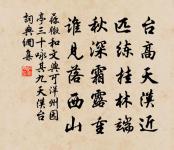 台高天漢近
匹練桂林端
秋深霜露重
誰見落西山
蘇轍和文與可洋州園
亭三十詠其九天漢台
詞典網集